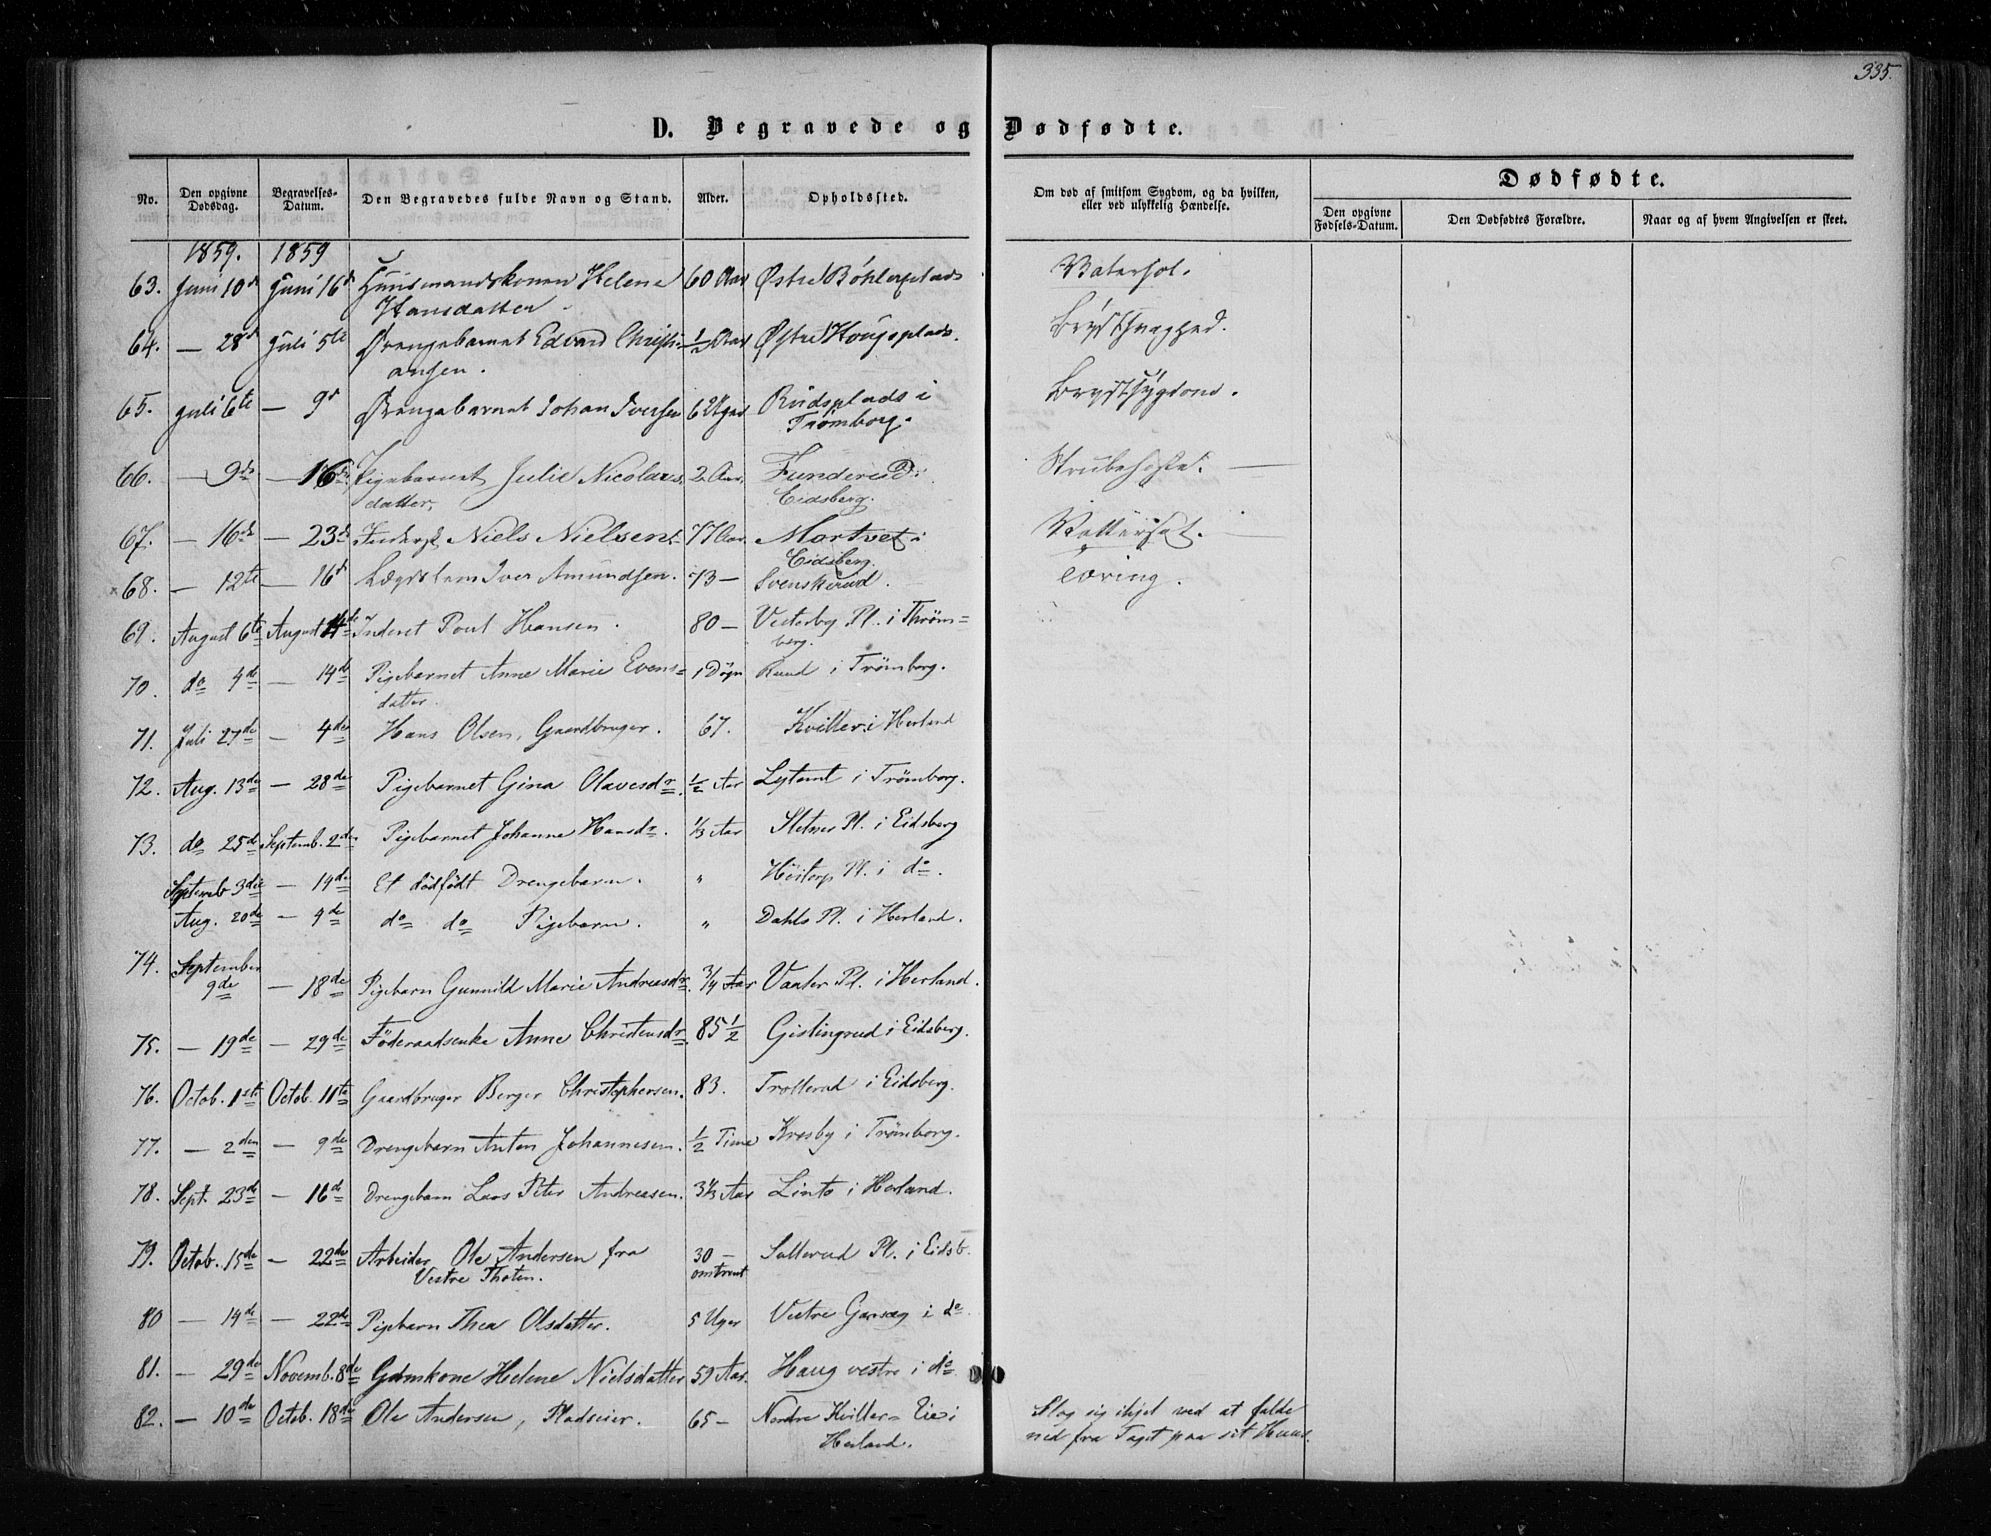 335.
D. Begravede og Dødfødte.
No. Den opgivne Dødsdag. Begravelses-Datum. Den Begravedes fulde Navn og Stand. Alder. Opholdssted. Om død af smitsom Sygdom, og da hvilken, eller ved ulykkelig Hændelse. Dødfødte.
Den opgivne Fødsels-Datum. Den Dødfødtes Forældre. Naar og af hvem Angivelsen er skeet.
1859. 1859
63. Juni 10d Juni 16d Huusmandskonen Helene 60 Aar Østre Bøhlerplads Vatersot.
Hansdatter
64. — 28d Juli 5te Drengebarnet Edvard Christi- 1/2 Aar Østre Hougsplads. Brystsvaghed.
ansen.
65. Juli 6te — 9d Drengebarnet Johan Iversen 6 Uger Rudsplads i Brystsygdom.
Trømborg.
66. — 9de — 16de Pigebarnet Julie Nicolais 2 Aar. Strubehoste. —
datter. Eidsberg.
67. — 16de — 23de Niels Nielsen. 77 Aar. Mortvet i Vattersot. —
Eidsberg.
68. — 12te — 16d Lægdslem Iver Amundsen. 73 — Svenskerud. Tæring.
69. August 6te August 14de Inderst Poul Hansen. 80 — Vesterby Pl. i Thrøm=
berg.
70. do 9de — 14de Pigebarnet Anne Marie Evens= 1 Døgn Ruud i Trømborg.
datter.
71. Juli 27de — 4de Hans Olsen, Gaardbruger. 67. Kviller i Herland
72. Aug. 13de — 28de Pigebarnet Gina Olavesdr. 1/2 Aar Lystomt i Trømborg.
73. do 25de Septemb. 2den Pigebarnet Johanne Hansdr. 1/3 Aar Sletner Pl. i Eidsberg
Septemb 3die — 14de Et dödfödt Drengebarn. " Höitorp Pl. i do.
Aug. 20de — 4de do do Pigebarn. " Dahls Pl. i Herland.
74. September
9de — 18de Pigebarn Gunnild Marie Andreasdr. 3/4 Aar Vaaler Pl. i Herland.
75. — 19de — 29de Föderaadsenke Anne Christensdr 85 1/2 Gislingrud i Eidsberg.
76. Octob. 1ste Octob. 11te Gaardbruger Berger Christophersen. 83. Trollerud i Eidsberg.
77. — 2den — 9de Drengebarn Anton Johannesen. 1/2 Time Krosby i Trømborg.
78. Sept. 23de — 16de Drengebarn Lars Peter Andreasen. 3 1/3 Aar Linto i Herland.
79. Octob. 15de — 22de Arbeider Ole Andersen fra 30 — Sollerud Pl. i Eidsb.
Vestre Thoten. omtrent
80 — 14de — 22de Pigebarn Thea Olsdatter. 5 Uger Vestre Garseg i do
81. — 29de Novemb. 8de Gdmkone Helene Nielsdatter 59 Aar. Haug vestre i do
82. — 10de Octob. 18de Ole Andersen, Pladseier. 65 — Nordre Kviller= Eie i Slog sig ihjel ved at falde
Herland. ned fra Taget paa sit Huus.